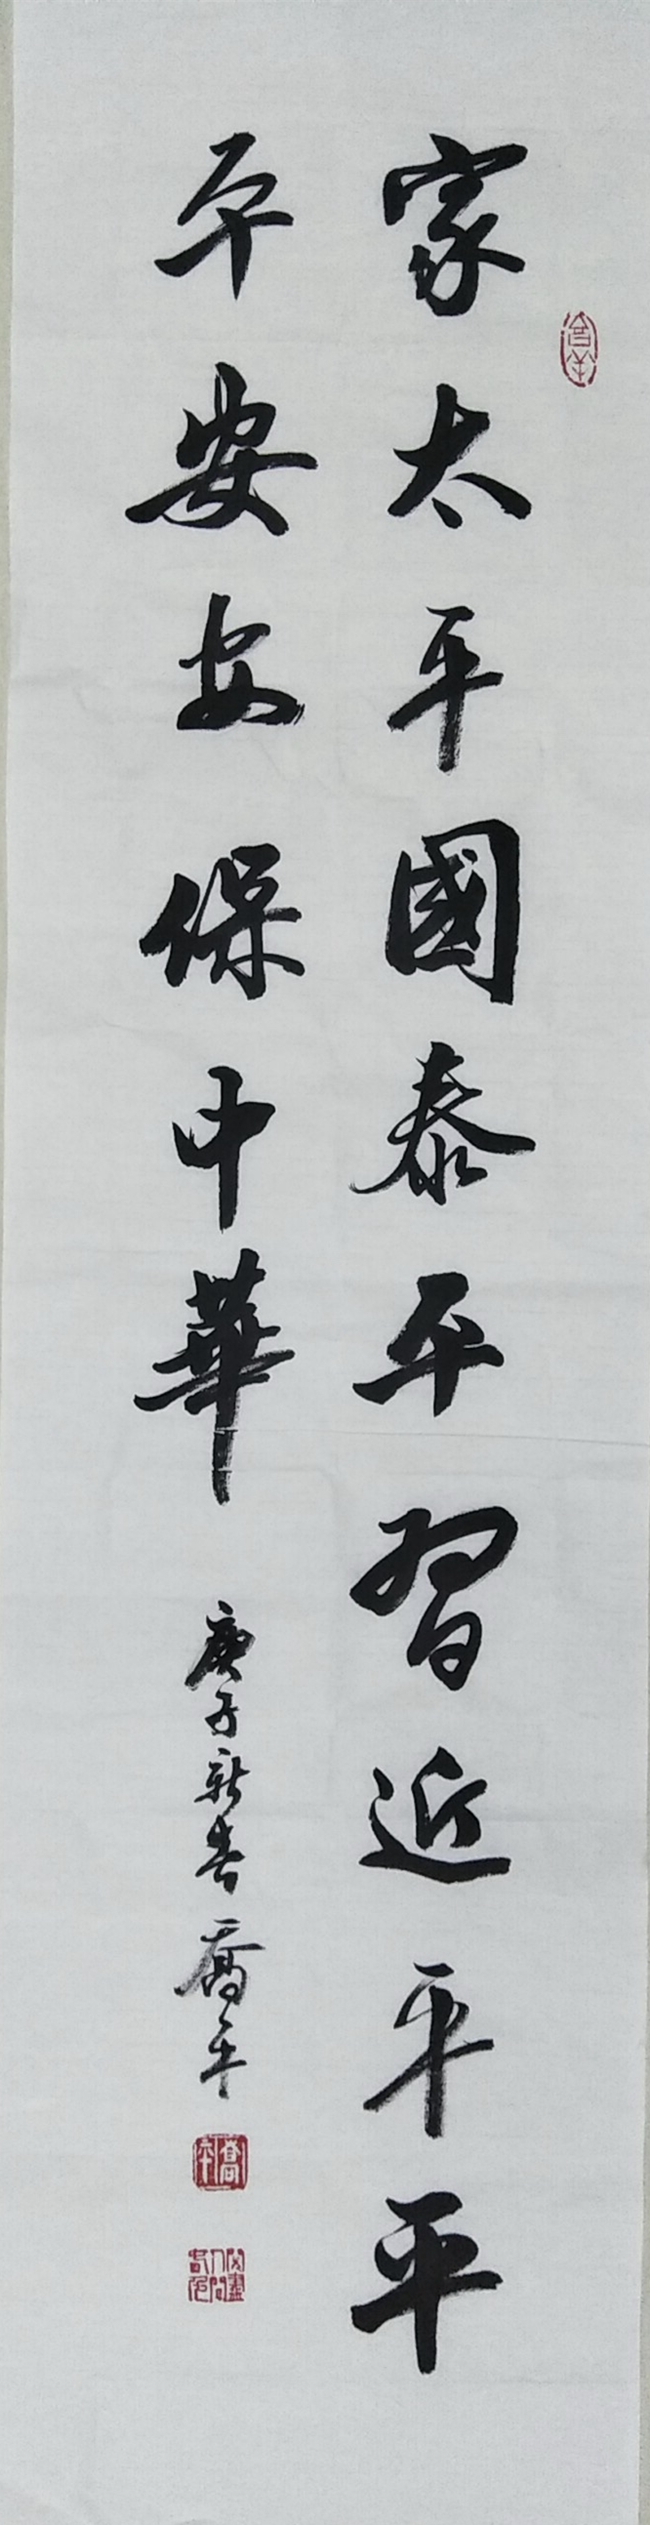 家太平國泰平習近平平
平安安保中華
庚子新春 喬平
喬平